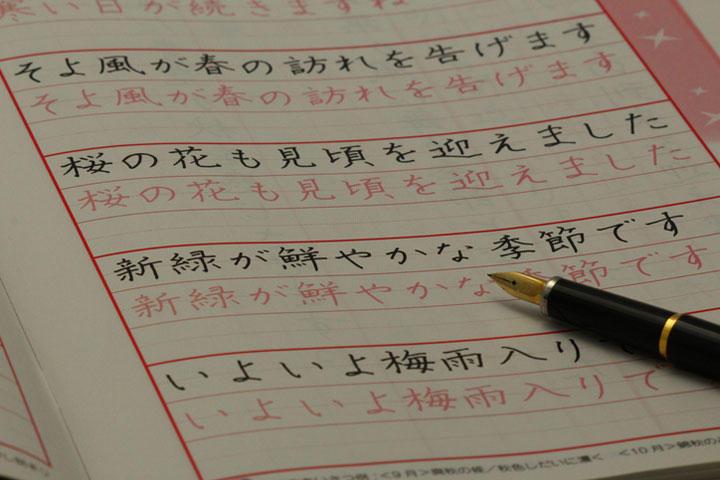 寒い日が続きますね
そよ風が春の訪れを告げます
そよ風が春の訪れを告げます
桜の花も見頃を迎えました
桜の花も見頃を迎えました
新緑が鮮やかな季節です
新緑が鮮やかな季節です
いよいよ梅雨入り
いよいよ梅雨入りで
<9月>爽秋の候／秋色しだいに濃く <10月>錦秋の